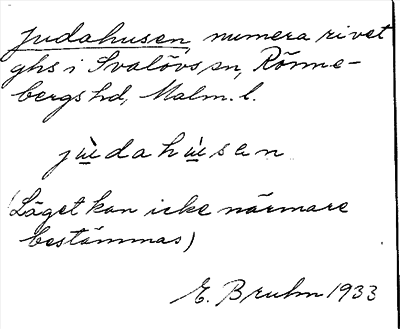 Judahusen, numera rivet
ghs i Svalövs sn, Rönne-
bergs hd, Malm. l.
jùdahùsen
(Läget kan icke närmare
bestämmas)
E. Bruhn 1933